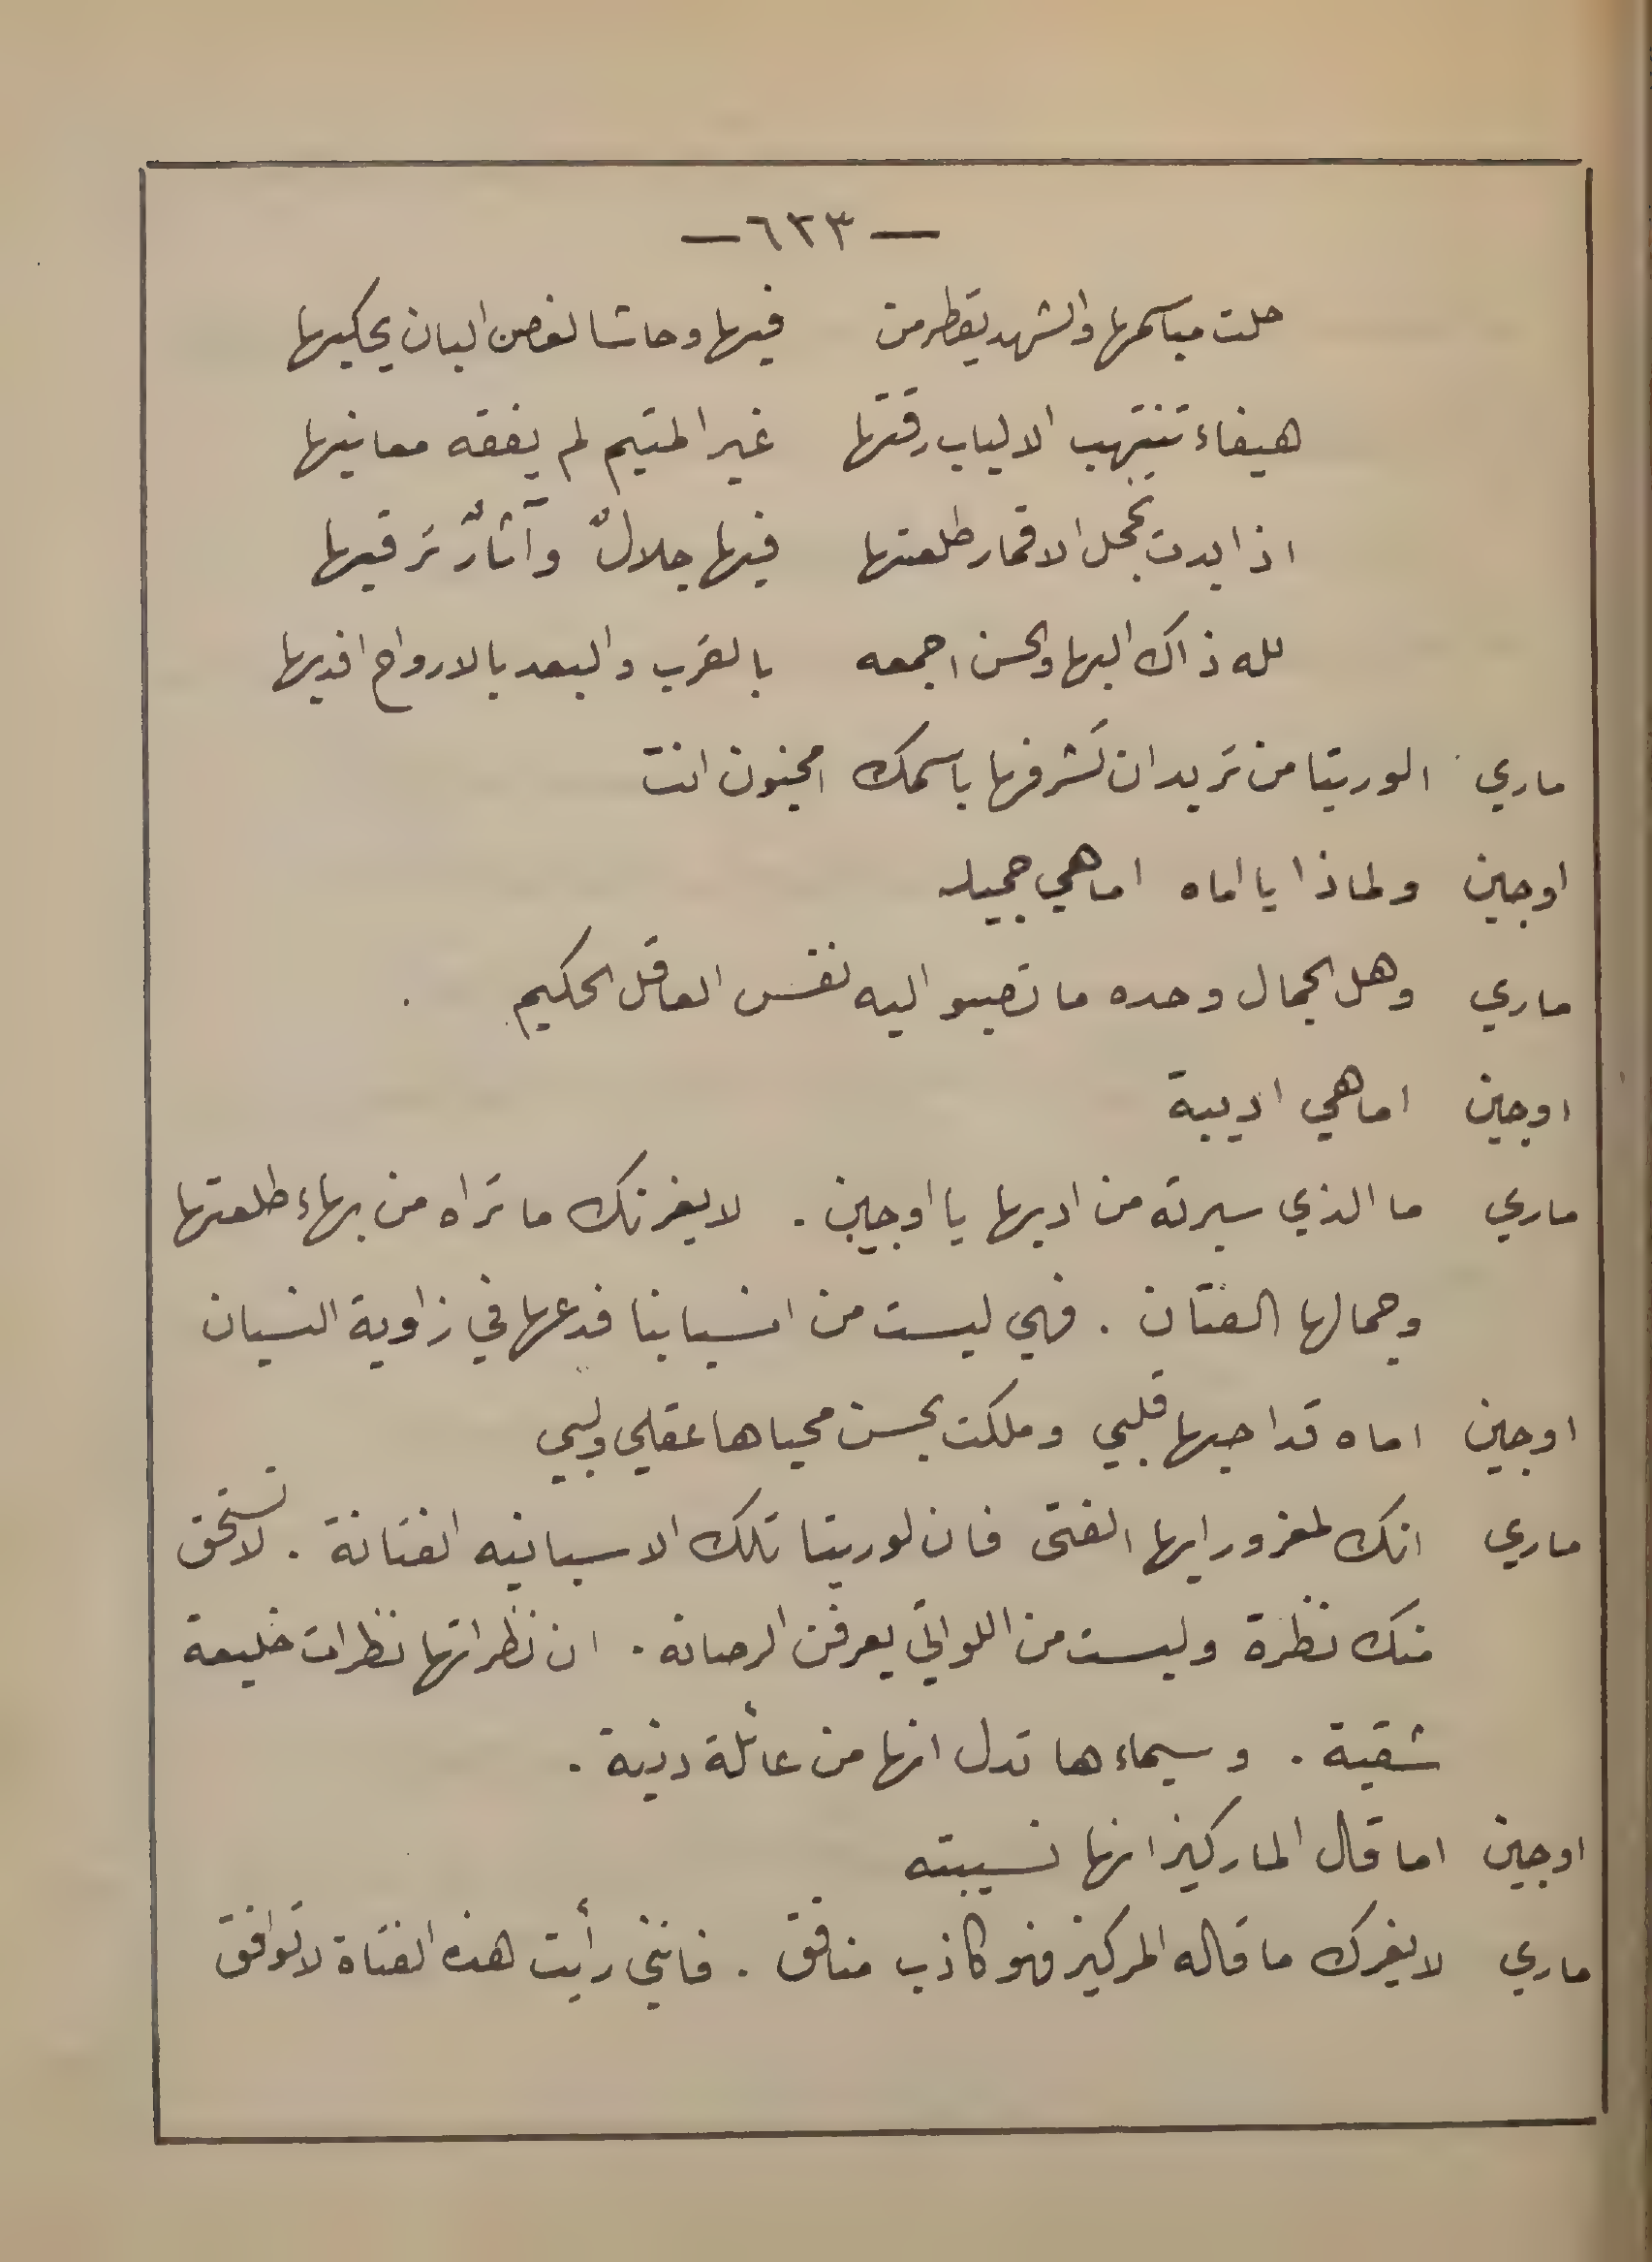 — ٦٢٣ —
حلت مباسمها والشهد يقطر من فيها وحاشا لغصن البان يحكيها
هيفاء تنتهب الالباب رقتها غير المتيم لم يفقه معانيها
اذا بدت تخجل الاقمار طلعتها فيها جلالٌ وآثارٌ ترقيها
لله ذاك البها والحسن اجمعه بالقرب والبعد بالارواح افديها
ماري الوريتا من تريد ان تشرفها باسمك امجنون انت
اوجين ولماذا يا اماه اما هي جميله
ماري وهل الجمال وحده ما تصبو اليه نفس العاقل الحكيم
اوجين اما هي اديبة
ماري ما الذي سبرته من ادبها يا اوجين . لا يغرنك ما تراه من بهاء طلعتها
وجمالها الفتان . فهي ليست من انسبابنا فدعها في زاوية النسيان
اوجين اماه قد احبها قلبي وملكت بحسن محياها عقلي ولبي
ماري انك لمغرور ايها الفتى فان لوريتا تلك الاسبانيه الفتانة . لا تستحق
منك نظرة وليست من اللواتي يعرفن الرصانه . ان نظراتها نظرات خليعة
شقية . وسيماءها تدل انها من عائلة دنية .
اوجين اما قال الماركيز انها نسيبته
ماري لا يغرك ما قاله المركيز فهو كاذب منافق . فانني رأيت هذه الفتاة لا توافق